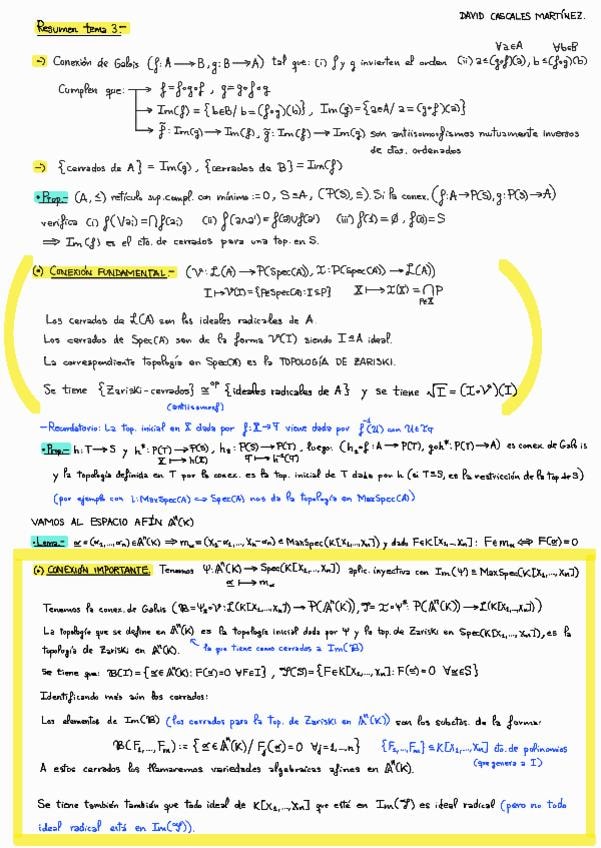 DAVID CASCALES MARTÍNEZ.
Resumen tema 3:-
→) Conexión de Galois (f: A → B, g: B → A) tal que: (i) f y g invierten el orden (ii) a ≤ (g∘f)(a), b ≤ (f∘g)(b) ∀a∈A ∀b∈B
Cumplen que: → f = f∘g∘f , g = g∘f∘g
→ Im(f) = {b∈B / b = (f∘g)(b)} , Im(g) = {a∈A / a = (g∘f)(a)}
→ f̃: Im(g) → Im(f), g̃: Im(f) → Im(g) son antiisomorfismos mutuamente inversos
de ctos. ordenados
→) {cerrados de A} = Im(g) , {cerrados de B} = Im(f)
• Prop.- (A, ≤) retículo sup.compl. con mínimo := 0, S = A, (P(S), ⊆). Si la conex. (f: A → P(S), g: P(S) → A)
verifica (i) f(∨ai) = ∩f(ai) (ii) f(a∧a') = f(a)∪f(a') (iii) f(1) = ∅, f(0) = S
⇒ Im(f) es el cto. de cerrados para una top. en S.
(•) CONEXIÓN FUNDAMENTAL.- (V: L(A) → P(Spec(A)), I: P(Spec(A)) → L(A))
I ↦ V(I) = {P∈Spec(A): I ≤ P} X ↦ I(X) = ∩ P
P∈X
Los cerrados de L(A) son los ideales radicales de A.
Los cerrados de Spec(A) son de la forma V(I) siendo I ≤ A ideal.
La correspondiente topología en Spec(A) es la TOPOLOGÍA DE ZARISKI.
Se tiene {Zariski-cerrados} ≅ᵒᵖ {ideales radicales de A} y se tiene √I = (I∘V)(I)
(antiisomorf)
-Recordatorio: La top. inicial en X dada por f: X → Y viene dada por f⁻¹(U) con U∈τY
• Prop.- h: T → S y h*: P(T) → P(S), h*: P(S) → P(T), luego: (h*∘f: A → P(T), g∘h*: P(T) → A) es conex. de Galois
X ↦ h(X) Y ↦ h⁻¹(Y)
y la topología definida en T por la conex. es la top. inicial de T dada por h (si T⊆S, es la restricción de la top de S)
(por ejemplo con i: MaxSpec(A) ↪ Spec(A) nos da la topología en MaxSpec(A))
VAMOS AL ESPACIO AFÍN Aⁿ(K)
• Lema.- α = (α₁,...,αn)∈Aⁿ(K) ⇒ mα = (X₁-α₁,..., Xn-αn) ∈ MaxSpec(K[X₁,...,Xn]) y dado F∈K[X₁,...,Xn]: F∈mα ⇔ F(α) = 0
(•) CONEXIÓN IMPORTANTE. Tenemos Ψ: Aⁿ(K) → Spec(K[X₁,...,Xn]) aplic. inyectiva con Im(Ψ) ⊆ MaxSpec(K[X₁,...,Xn])
α ↦ mα
Tenemos la conex. de Galois (B = Ψ*∘V: L(K[X₁,...,Xn]) → P(Aⁿ(K)), J = I∘Ψ*: P(Aⁿ(K)) → L(K[X₁,...,Xn]))
La topología que se define en Aⁿ(K) es la topología inicial dada por Ψ y la top. de Zariski en Spec(K[X₁,...,Xn]), es la
topología de Zariski en Aⁿ(K). la que tiene como cerrados a Im(B)
Se tiene que: B(I) = {α∈Aⁿ(K): F(α) = 0 ∀F∈I} , J(S) = {F∈K[X₁,...,Xn]: F(α) = 0 ∀α∈S}
Identificando más aún los cerrados:
Los elementos de Im(B) (los cerrados para la top. de Zariski en Aⁿ(K)) son los subctos. de la forma:
B(F₁,...,Fm) := {α∈Aⁿ(K) / Fj(α) = 0 ∀j = 1,...n} {F₁,...,Fm} ⊆ K[X₁,...,Xn] cto. de polinomios
(que genera a I)
A estos cerrados los llamaremos variedades algebraicas afines en Aⁿ(K).
Se tiene también también que todo ideal de K[X₁,...,Xn] que está en Im(J) es ideal radical (pero no todo
ideal radical está en Im(J)).